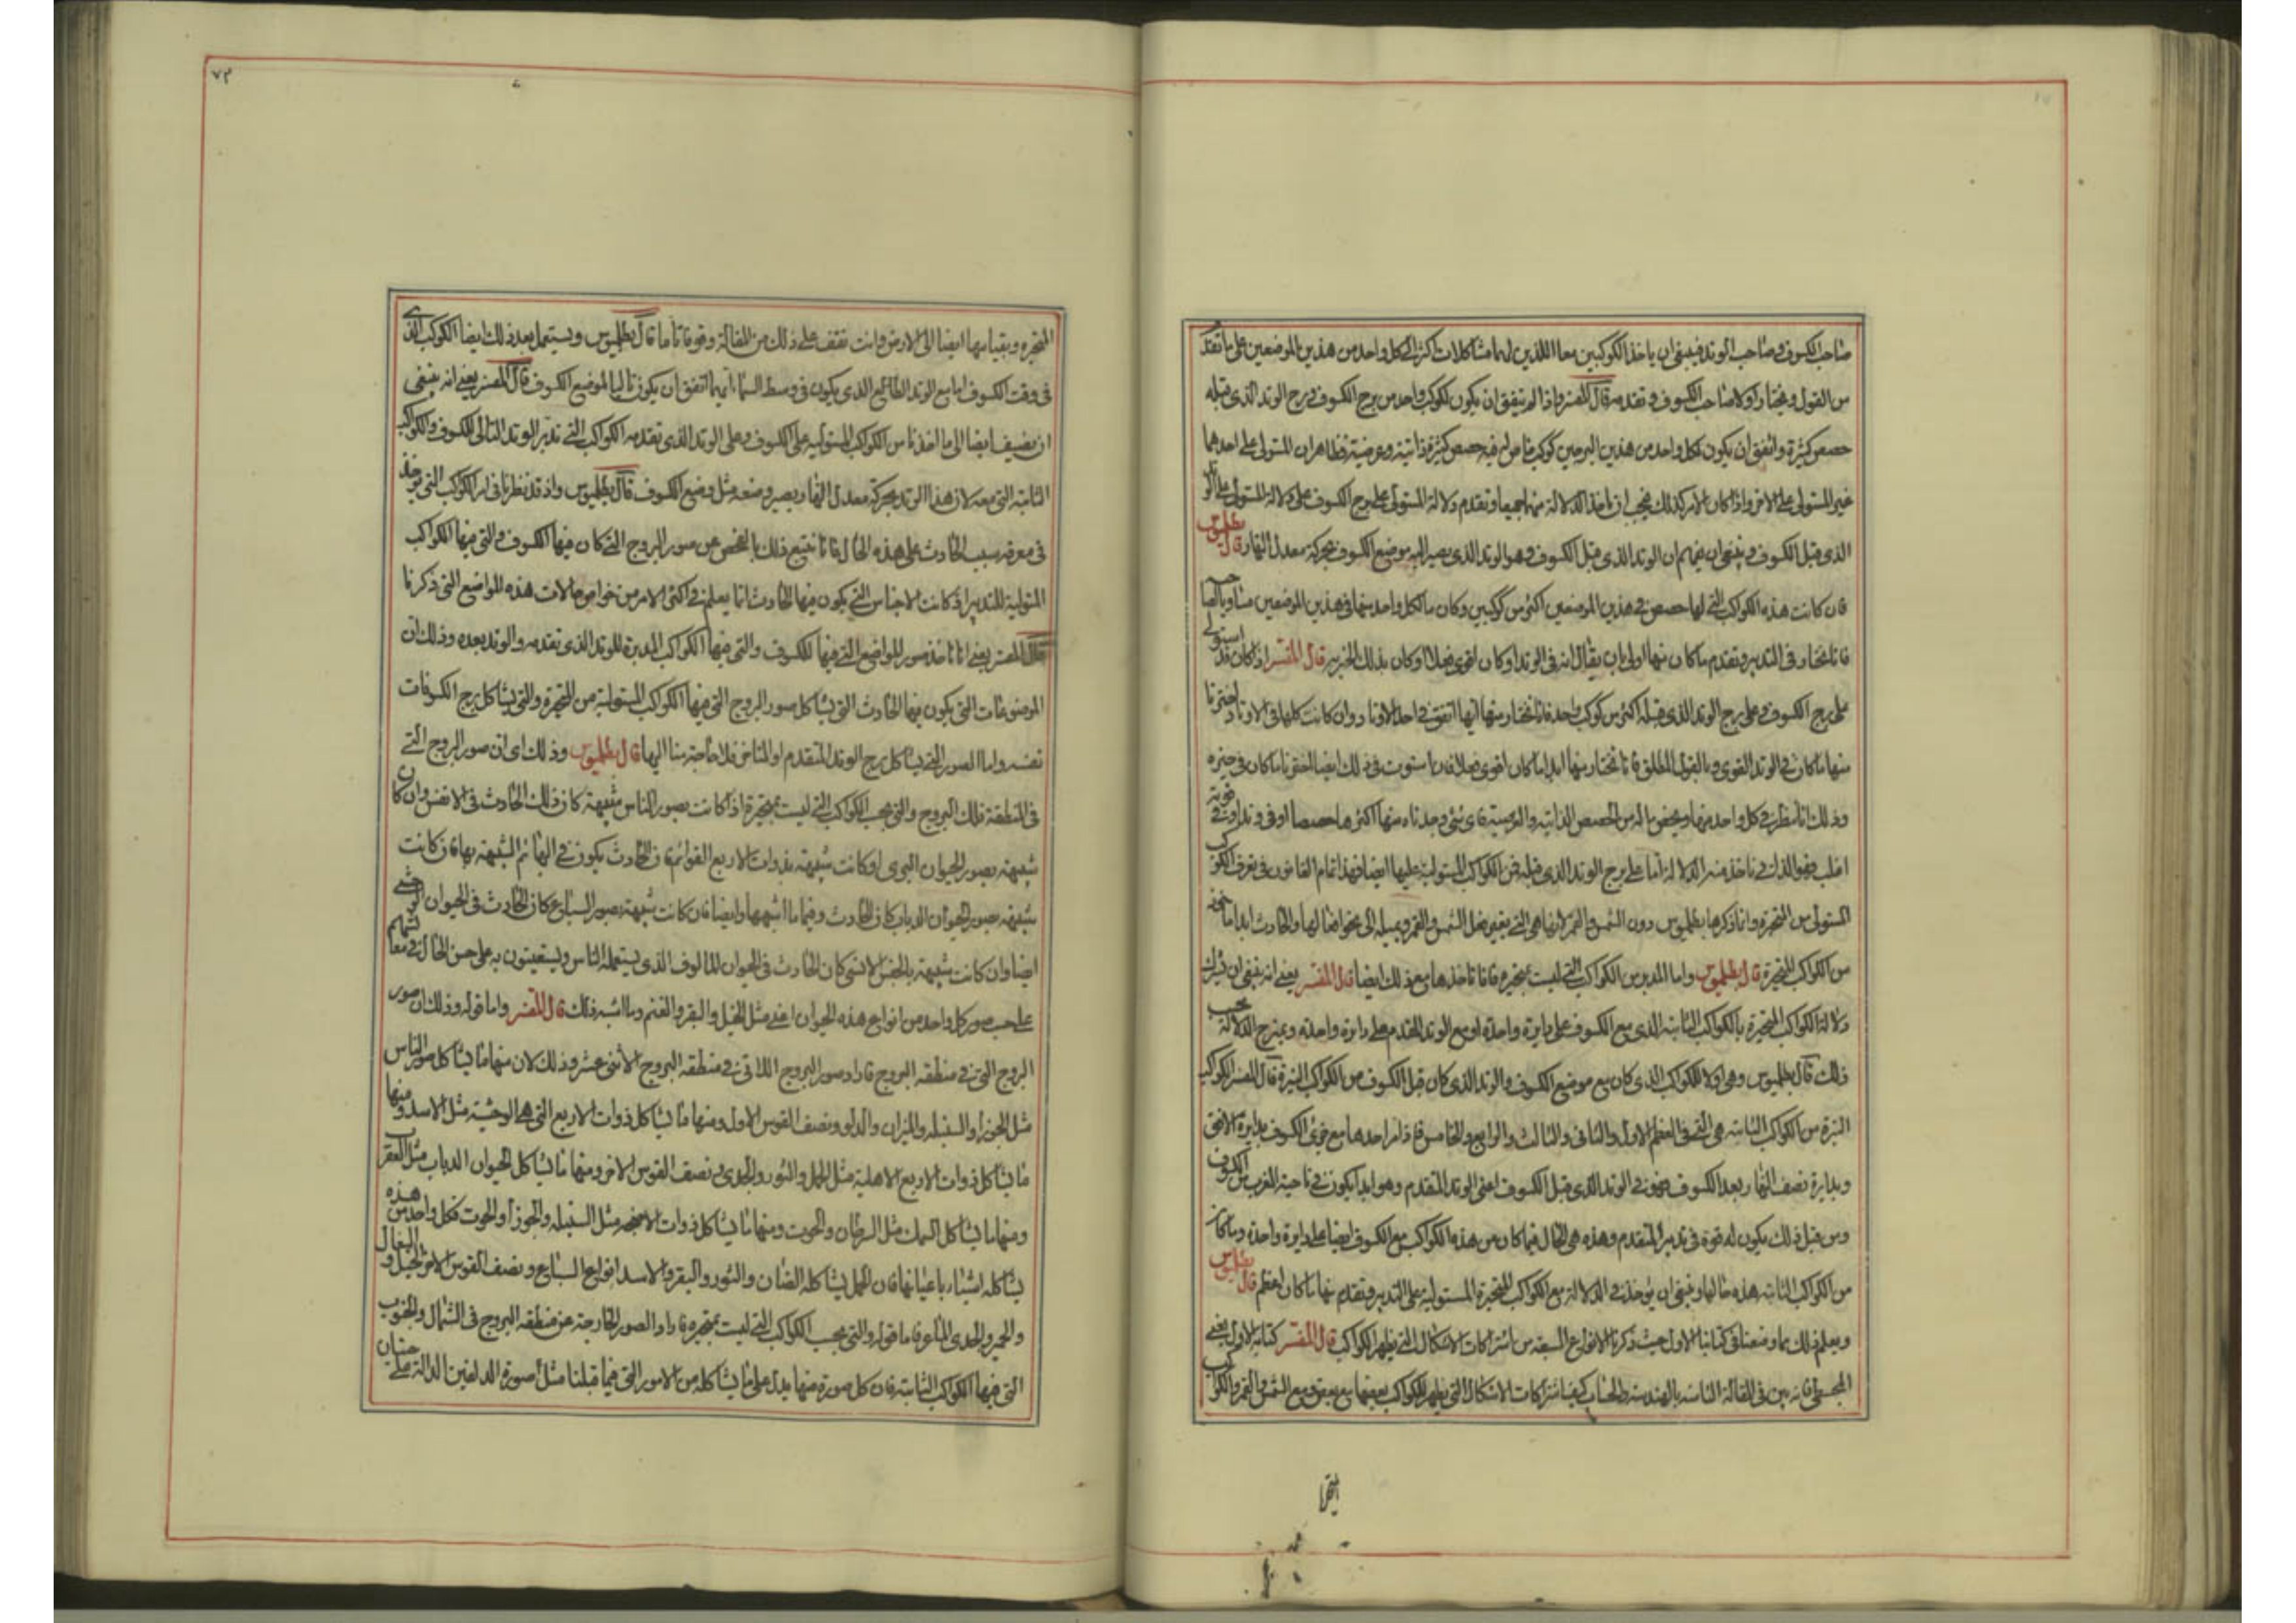 صاحب الكسوف وصاحب الوتد فينبغي ان ياخذ الكوكبين معا اللذين لهما مشاكلات اكثر الى كل واحد من هذين الموضعين على ما تقدم
من القول ويختار اولا صاحب الكسوف ويقدمه قال المفسر واذا لم يتفق ان يكون لكوكب واحد من برج الكسوف وبرج الوتد الذي قبله
حصص كثيرة واتفق ان يكون لكل واحد من هذين البرجين كوكب ما من له فيه حصص كثيرة ذاتية وعرضية فظاهر ان المستولي على احدهما
غير المستولي على الاخر واذا كان الامر كذلك فيجب ان ناخذ الدلالة منهما جميعا ونقدم دلالة المستولي على برج الكسوف على دلالة المستولي على الوتد
الذي قبل الكسوف وينبغي ان يفهم ان الوتد الذي قبل الكسوف هو الوتد الذي يصير اليه موضع الكسوف بحركة معدل النهار قال بطلميوس
فان كانت هذه الكواكب التي لها حصص في هذين الموضعين اكثر من كوكبين وكان ما لكل واحد منهما في هذين الموضعين متساويا
فانا نختار في التدبير ونقدم ما كان منها اولى بان يقال انه في الوتد او كان اقوى فعلا او كان بذلك الحيز قال المفسر اذا كان قد استولى
على برج الكسوف وعلى برج الوتد الذي قبله اكثر من كوكب واحد فانا نختار منها ايها اتفق في احد الاوتاد وان كانت كلها في الاوتاد اخترنا
منها ما كان في الوتد القوي وبالقول المطلق فانا نختار منها ابدا ما كان اقوى فعلا فان استوت في ذلك ايضا اخترنا ما كان في حيزه
وذلك انا ننظر في كل واحد منها ونحصي ما له من الحصص الذاتية والعرضية فاي شئ وجدناه منها اكثرها حصصا او في وتد او في قوته
اغلب فهو الذي ناخذ منه الدلالة اما على برج الوتد الذي قبله فمن الكواكب المستولية عليها ايضا فهذا تمام القانون في تعرف الكوكب
المستولي من المتحيرة وانما ذكرها بطلميوس دون الشمس والقمر لانها هي التي تغير فعل الشمس والقمر وتميله الى نحو افعالها والحادث ابدا ماخوذ
من الكواكب المتحيرة قال بطلميوس واما المدبر من الكواكب التي ليست بمتحيرة فانا ناخذها مع ذلك ايضا قال المفسر يعني انه ينبغي ان نشرك
دلالة الكواكب المتحيرة بالكواكب الثابتة الذي مع الكسوف على دايرة واحدة او مع الوتد المتقدم على دايرة واحدة ويمزج الدلالة بحسب
ذلك قال بطلميوس وهي اولا الكوكب الذي كان مع موضع الكسوف والوتد الذي كان قبل الكسوف من الكواكب النيرة قال المفسر الكواكب
النيرة من الكواكب الثابتة هي التي في العظم الاول والثاني والثالث والرابع والخامس فاذا مر احدها مع جزئ الكسوف بدايرة الافق
وبدايرة نصف النهار بعد الكسوف فهو في الوتد الذي قبل الكسوف اعني الوتد المتقدم وهو ابدا يكون في ناحية الغرب من الكسوف
ومن قبل ذلك يكون له قوة في تدبير المتقدم وهذه هي الحال فيما كان من هذه الكواكب مع الكسوف ايضا على دايرة واحدة وما كان
من الكواكب الثابتة هذه حالها وينبغي ان يؤخذ في الدلالة مع الكواكب المتحيرة المستولية على التدبير ونقدم منها ما كان اعظم قال بطلميوس
ويعلم ذلك مما وضعنا في كتابنا الاول حيث ذكرنا الانواع السبعة من اشتراكات الاشكال التي يظهر للكواكب قال المفسر كتابه الاول يعني
المجسطي فانه بين في المقالة الثامنة بالهندسة والحساب كيف اشتراكات الاشكال التي يظهر للكواكب بعضها مع بعض ومع الشمس والقمر والكواكب
المتحيرة
المتحيرة وبقياسها ايضا الى الارض وانت تقف على ذلك من المقالة وقوفا تاما قال بطلميوس ويستعمل بعد ذلك ايضا الكوكب الذي
في وقت الكسوف اما مع الوتد الطالع الذي يكون في وسط السماء ايهما اتفق ان يكون تاليا لموضع الكسوف قال المفسر يعني انه ينبغي
ان نضيف ايضا الى ما اخذنا من الكواكب المستولية على الكسوف وعلى الوتد الذي تقدمه الكواكب التي تدبر الوتد التالي للكسوف والكواكب
الثابتة التي معه لان هذا الوتد بحركة معدل النهار يصير وضعه مثل وضع الكسوف قال بطلميوس واذ قد نظرنا في امر الكواكب التي توخذ
في معرفة سبب الحادث على هذه الحال فانا نتبع ذلك بالفحص عن صور البروج التي كان فيها الكسوف والتي فيها الكواكب
المتولية للتدبير اذ كانت الاجناس التي يكون فيها الحادث انما يعلم في اكثر الامر من خواص حالات هذه المواضع التي ذكرنا
قال المفسر يعني انا ناخذ صور المواضع التي فيها الكسوف والتي فيها الكواكب المدبرة للوتد الذي تقدمه والوتد بعده وذلك ان
الموضوعات التي يكون فيها الحادث التي يشاكل صور البروج التي فيها الكواكب المستولية من المتحيرة والتي يشاكل برج الكسوفات
نفسه واما الصور التي يشاكل برج الوتد المتقدم او المتاخر فلا حاجة بنا اليها قال بطلميوس وذلك اي ان صور البروج التي
في المنطقة فلك البروج والتي بحسب الكواكب التي ليست بمتحيرة اذا كانت بصور الناس شبيهة كان ذلك الحادث في الانفس وان كان
شبيهة بصور الحيوان البري او كانت شبيهة بذوات الاربع القوائم فان الحادث يكون في البهائم الشبيهة بها فان كانت
شبيهة بصور الحيوان الدباب كان الحادث وفيما ما اشبهها وايضا فان كانت شبيهة بصور السباع كان الحادث في الحيوان الوحشي
ايضا وان كانت شبيهة بالجنس الانسي كان الحادث في الحيوان المالوف الذي يستعمله الناس ويستعينون به على حسن الحال في معاشهم
على حسب صور كل واحد من انواع هذه الحيوان اعني مثل الخيل والبقر والغنم وما اشبه ذلك قال المفسر واما قوله وذلك ان صور
البروج التي في منطقة البروج فاراد صور البروج اللاتي في منطقة البروج الاثني عشر وذلك لان منها ما يشاكل صور الناس
مثل الجوزا والسنبلة والميزان والدلو ونصف القوس الاول ومنها ما يشاكل ذوات الاربع التي هي الوحشية مثل الاسد ومنها
ما يشاكل ذوات الاربع الاهلية مثل الحمل والثور والجدي ونصف القوس الاخر ومنها ما يشاكل الحيوان الدباب مثل العقرب
ومنها ما يشاكل السمك مثل السرطان والحوت ومنها ما يشاكل ذوات الاجنحة مثل السنبلة والجوزا والحوت فكل واحد من هذه
يشاكله اشياء باعيانها فان الحمل يشاكله الضان والثور والبقر والاسد انواع السباع ونصف القوس الاخر الخيل والبغال
والحمير والجدي الماعز فاما قوله والتي بحسب الكواكب التي ليست بمتحيرة فاراد الصور الخارجة عن منطقة البروج في الشمال والجنوب
التي فيها الكواكب الثابتة فان كل صورة منها يدل على ما يشاكله من الامور التي فيما قبلنا مثل صورة الدلفين الدالة على حيتان